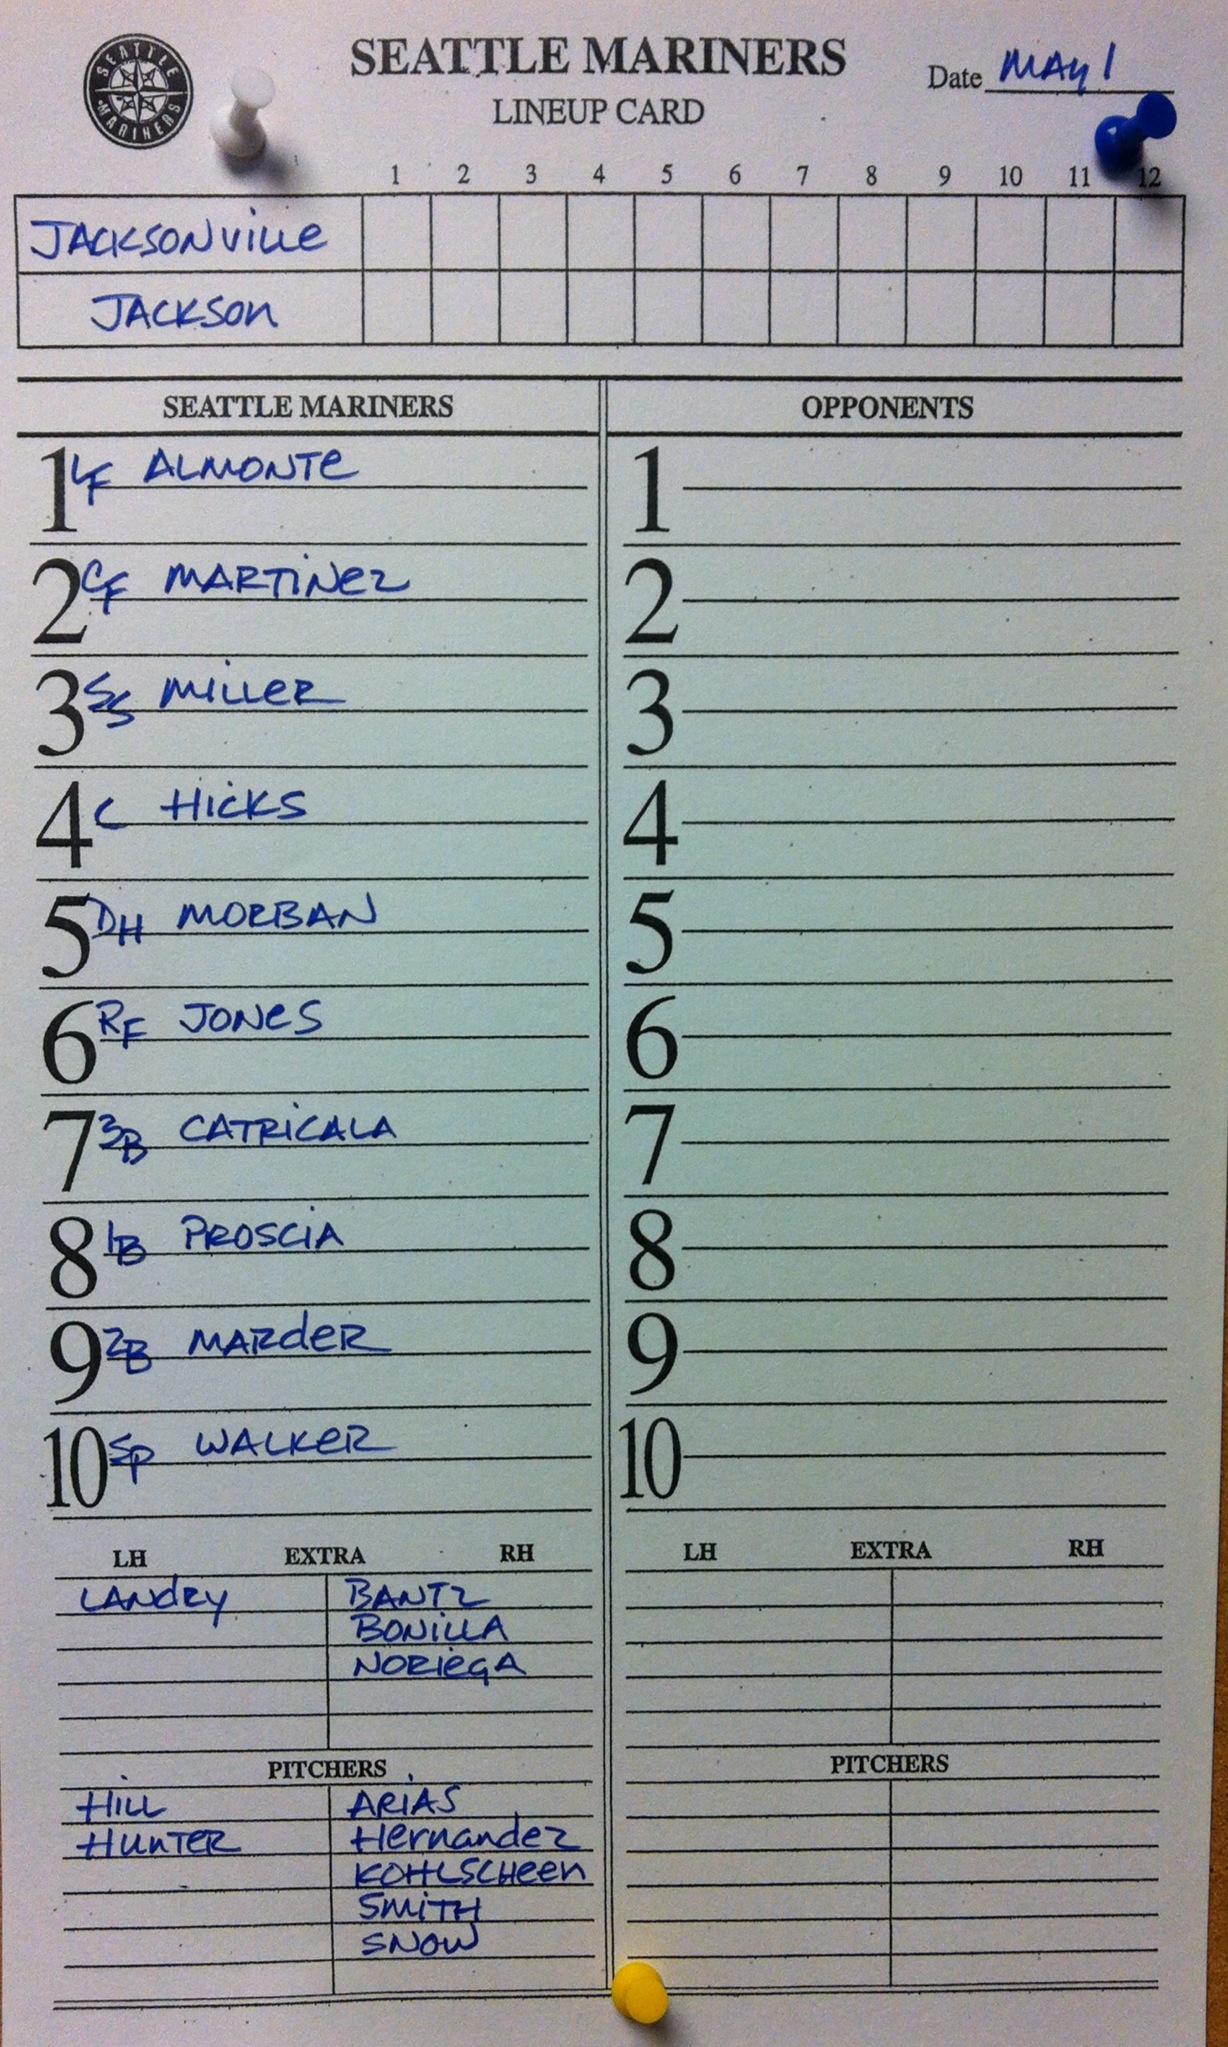 SEATTLE MARINERS
SEATTLE MARINERS
LINEUP CARD
Date MAY 1
1 2 3 4 5 6 7 8 9 10 11 12
JACKSONVILLE
JACKSON
SEATTLE MARINERS OPPONENTS
1 LF ALMONTE 1
2 CF MARTINEZ 2
3 SS MILLER 3
4 C HICKS 4
5 DH MORBAN 5
6 RF JONES 6
7 3B CATRICALA 7
8 1B PROSCIA 8
9 2B MARDER 9
10 SP WALKER 10
LH EXTRA RH LH EXTRA RH
LANDRY BANTZ
BONILLA
NORIEGA
PITCHERS PITCHERS
HILL ARIAS
HUNTER HERNANDEZ
KOHLSCHEEN
SMITH
SNOW